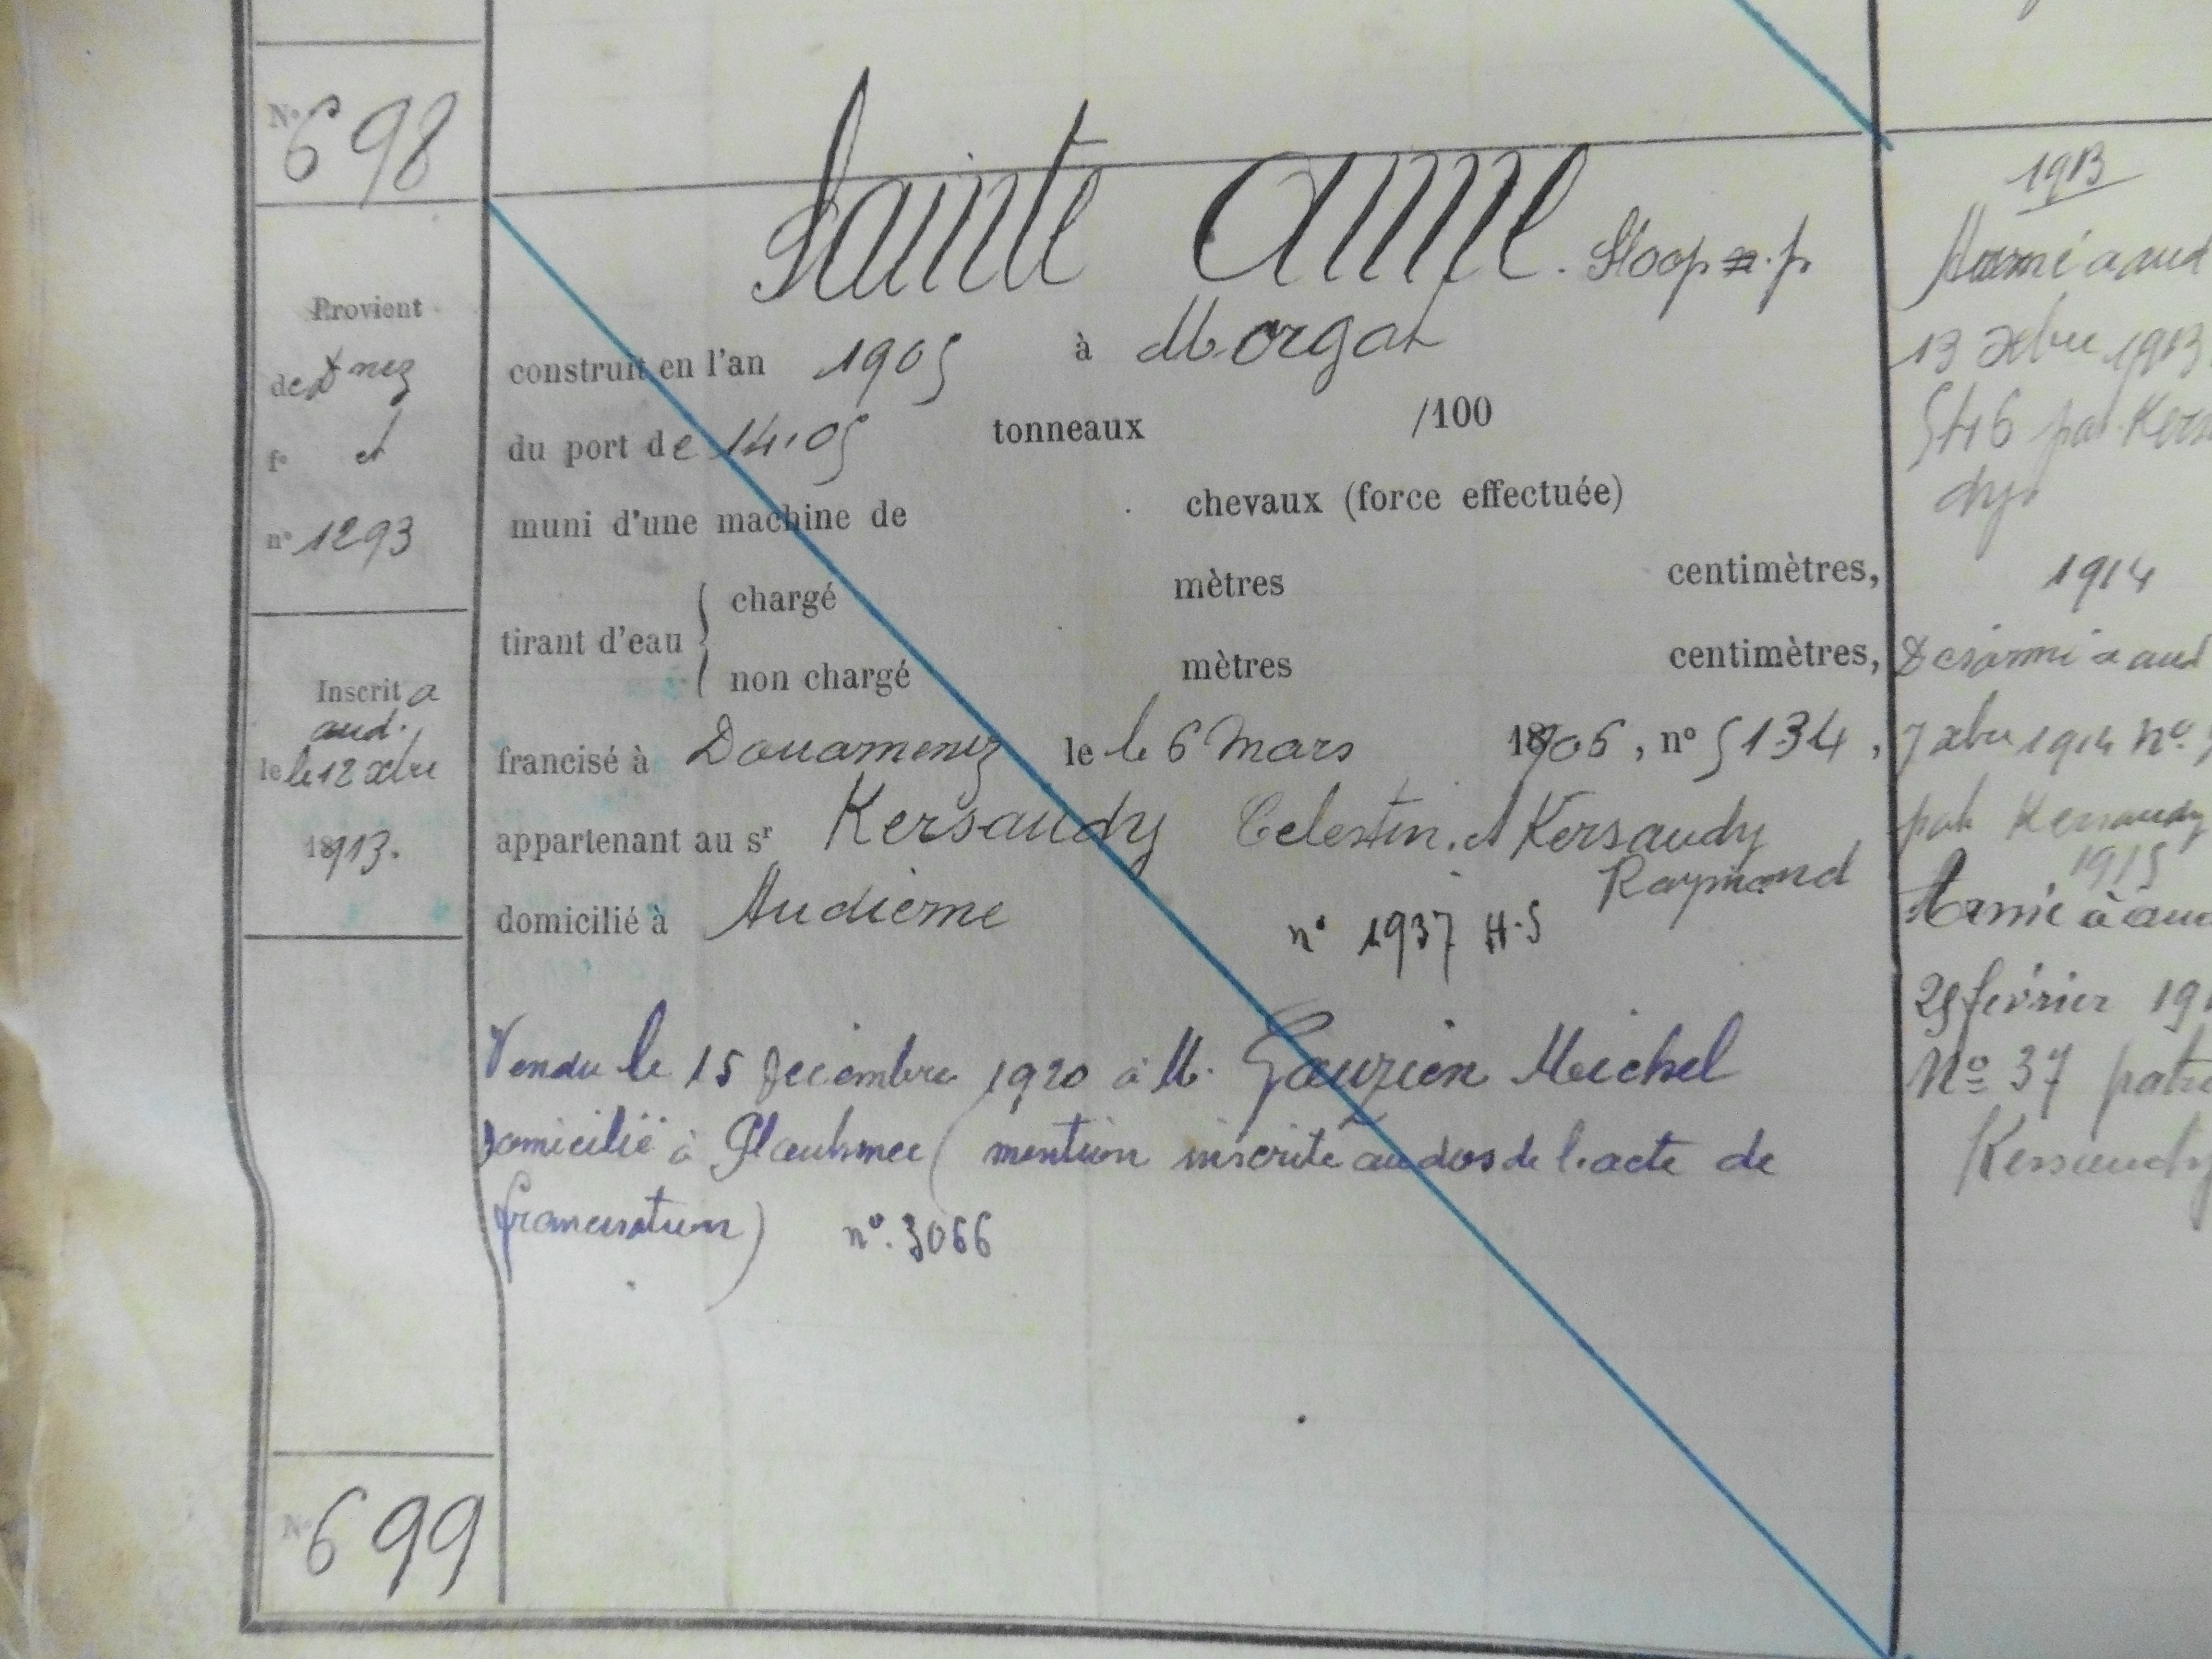 N° 698
Provient
de Dnez
f° et
n° 1293
Inscrit a
aud.
le le 12 xbre
1913.
Sainte Anne. Sloop n. p.
construit en l'an 1905 à Morgat
du port de 14.05 tonneaux /100
muni d'une machine de chevaux (force effectuée)
tirant d'eau { chargé mètres centimètres,
non chargé mètres centimètres,
francisé à Douarnenez le le 6 Mars 1906, n° 5134,
appartenant au sr Kersaudy Celestin. et Kersaudy
Raymond
domicilié à Audierne n° 1937 H.S
Vendu le 15 Décembre 1920 à M. Gourzien Michel
domicilié à Plouhinec (mention inscrite au dos de l'acte de
francisation) n°. 3066
N° 699
1913
Armé a aud
13 xbre 1913
546 pat. Kersa
dy.
1914
Désarmé a aud
7 xbre 1914 N°
pat. Kersaudy
1915
Armé à aud
25 février 191
N° 37 patr
Kersaudy